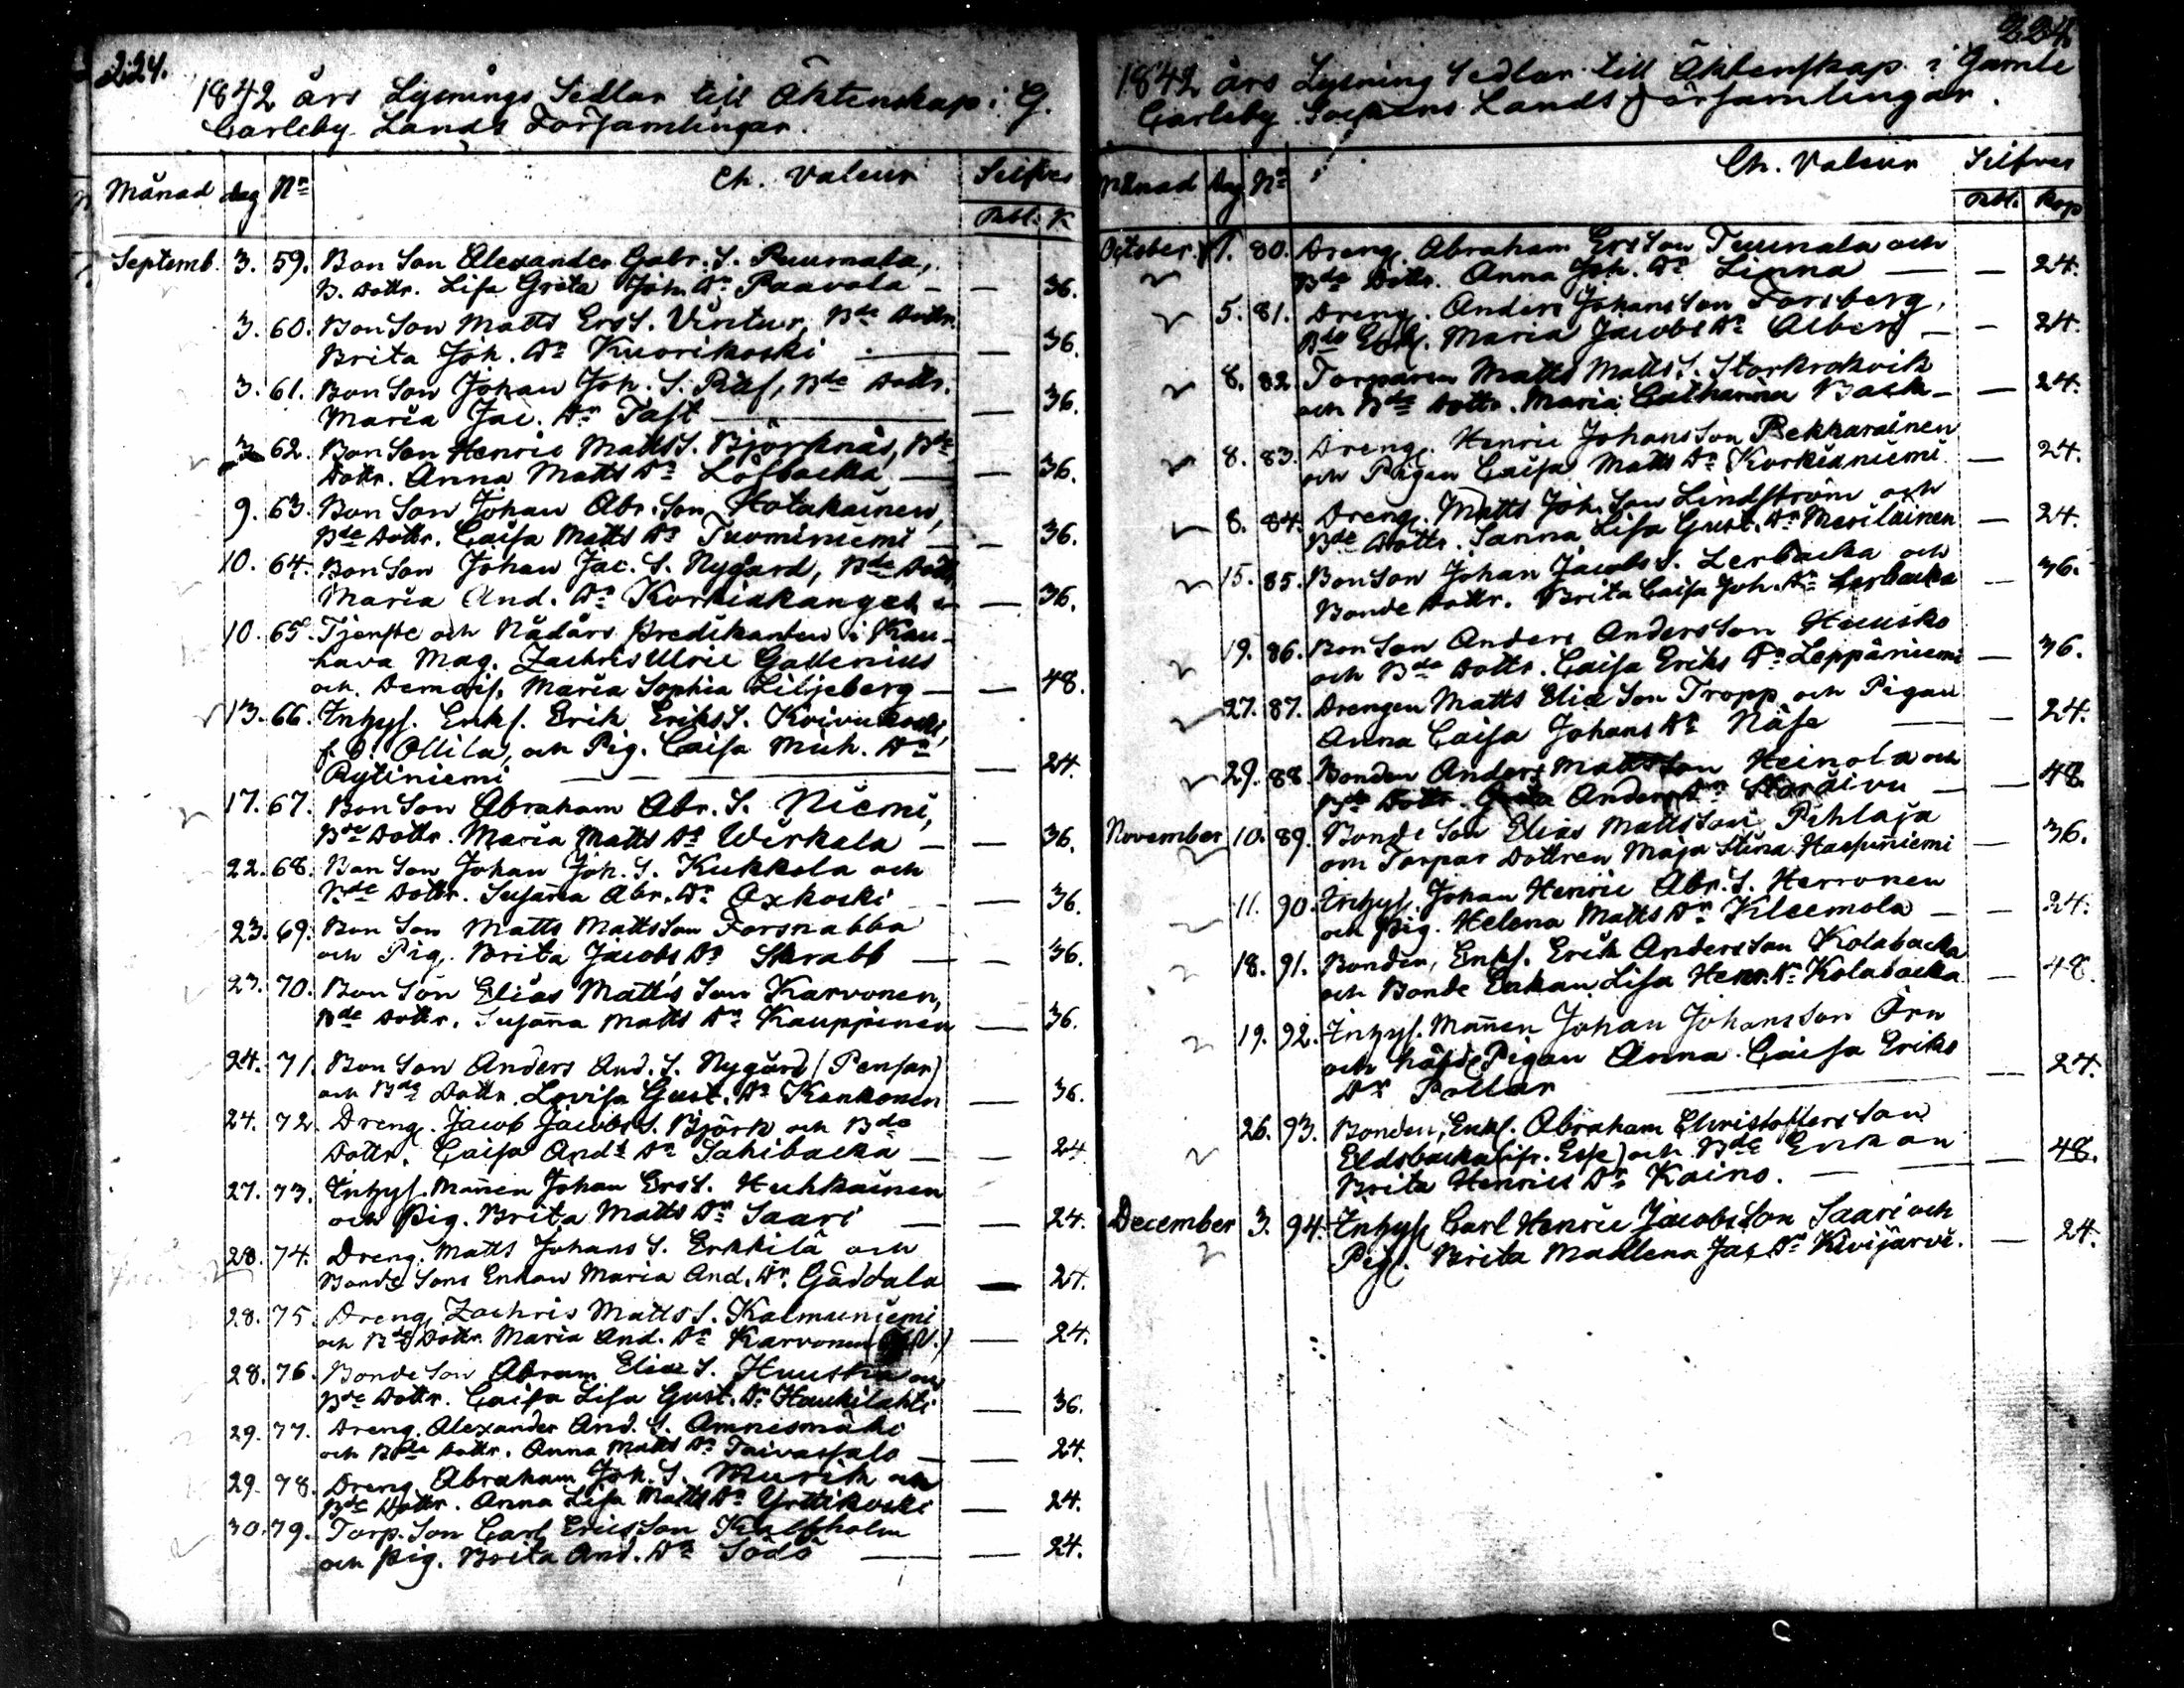 224.
1842 års Lysnings Sedlar till Äktenskap i G.
Carleby Lands Församlingar.
Månad dag No Ch. Valeur Silfver
Rbl. K.
Septemb. 3. 59. Bon Son Alexander Gabr. S. Puumala,
B. Dottr. Lisa Greta Joh. Dr Paavola — — 36.
3. 60. Bon Son Matts Ers S. Vintur, Bde Dottr.
Brita Joh. Dr Kuorikoski — — 36.
3. 61. Bon Son Johan Joh. S. Räf, Bde Dottr.
Maria Jac. Dr Taft — — 36.
3 62. Bon Son Henric Matts S. Björknäs, Bde
Dottr. Anna Matts Dr Löfbacka — — 36.
9. 63. Bon Son Johan Abr. Son Hotakainen,
Bde Dottr. Caisa Matts Dr Tuominiemi — — 36.
10. 64. Bon Son Johan Jac. S. Nygård, Bde Dottr
Maria And. Dr Korkiakangas — 36.
10. 65. Tjenste och Nådårs Predikanten i Kau-
hava Mag. Zachris Ulric Gallenius
och Demois. Maria Sophia Liljeberg — — 48.
13. 66. Inhys. Enkl. Erik Eriks S. Koivukoski,
f. d. Ollila, och Pig. Caisa Mich. Dr
Rytiniemi — — — 24.
17. 67. Bon Son Abraham Abr. S. Niemi,
Bde Dottr. Maria Matts Dr Wirkala — — 36.
22. 68. Bon Son Johan Joh. S. Kukkola och
Bde Dottr. Susanna Abr. Dr Oxkoski — — 36.
23. 69. Bon Son Matts Matts Son Forsnabba
och Pig. Brita Jacobs Dr Skrabb — — 36.
23. 70. Bon Son Elias Matts Son Karvonen,
Bde Dottr. Susanna Matts Dr Kauppinen — 36.
24. 71. Bon Son Anders And. S. Nygård (Pensar)
och Bde Dottr. Lovisa Gust. Dr Kankonen — 36.
24. 72. Dreng. Jacob Jacobs S. Björk och Bde
Dottr. Caisa Ands Dr Sahibacka — — 24
27. 73. Inhys. Mannen Johan Ers S. Huhkainen
och Pig. Brita Matts Dr Saari — — 24.
28. 74. Dreng. Matts Johans S. Erkkilä och
Bonde Sons Enkan Maria And. Dr Gäddala — 24.
28. 75. Dreng. Zachris Matts S. Kalmuniemi
och Bde Dottr. Maria And. Dr Karvonen — 24.
28. 76. Bonde Son Abram Eliæ S. Huuska och
Bde Dottr. Caisa Lisa Gust. Dr Haukilahti — 36.
29. 77. Dreng. Alexander And. S. Annismäki
och Bde Dottr. Anna Matts Dr Taivassalo — 24.
29. 78. Dreng Abraham Joh. S. Murik och
Bde Dottr. Anna Lisa Matts Dr Yrttikoski — 24.
30. 79. Torp. Son Carl Ericsson Kalfholm
och Pig. Brita And. Dr Södö — — 24.
224.
1842 års Lysning Sedlar till Äktenskap i Gamle
Carleby Sockens Lands Församlingar.
Månad Dag No Ch. Valeur Silfver
Rbl. Kop
October. 1. 80. Dreng. Abraham Ersson Tuunala och
Bde Dottr. Anna Joh. Dr Linna — — 24.
5. 81. Dreng. Anders Johansson Forsberg,
Bde Enk. Maria Jacobs Dr Alberg — — 24.
8. 82. Torparen Matts Matts S. Storkrokvik
och Bde Dottr. Maria Catharina Back — — 24.
8. 83. Dreng. Henric Johansson Pekkarainen
och Pigan Caisa Matts Dr Korkianiemi — 24.
8. 84. Dreng. Matts Joh. Son Lindström och
Bde Dottr. Sanna Lisa Gust. Dr Mesiläinen — 24.
15. 85. Bon Son Johan Jacobs S. Lerbacka och
Bonde Dottr. Brita Caisa Joh. Dr Lerbacka — 36.
19. 86. Bon Son Anders Andersson Huusko
och Bde Dottr. Caisa Eriks Dr Leppäniemi — 36.
27. 87. Drengen Matts Eliæ Son Tropp och Pigan
Anna Caisa Johans Dr Näse — — 24.
29. 88. Bonden Anders Mattsson Heinola och
Bde Dottr. Greta Anders Dr — — 48.
November 10. 89. Bonde Son Elias Mattsson Pihlaja
och Torpar Dottren Maja Stina Haapaniemi — 36.
11. 90. Inhys. Johan Henric Abr. S. Herronen
och Pig. Helena Matts Dr Kleemola — — 24.
18. 91. Bonden, Enkl. Erik Andersson Kolabacka
och Bonde Enkan Lisa Henr. Dr Kolabacka — 48.
19. 92. Inhys. Mannen Johan Johansson Örn
och Pigan Anna Caisa Eriks
Dr Pollar — — 24.
26. 93. Bonden, Enkl. Abraham Christophersson
Eldsbacka (ifr. Esse) och Bde Enkan
Brita Henrics Dr Kaino. — — 48.
December 3. 94. Inhys. Carl Henric Jacobsson Saari och
Pig. Brita Madlena Jac Dr Kivijärvi. — 24.